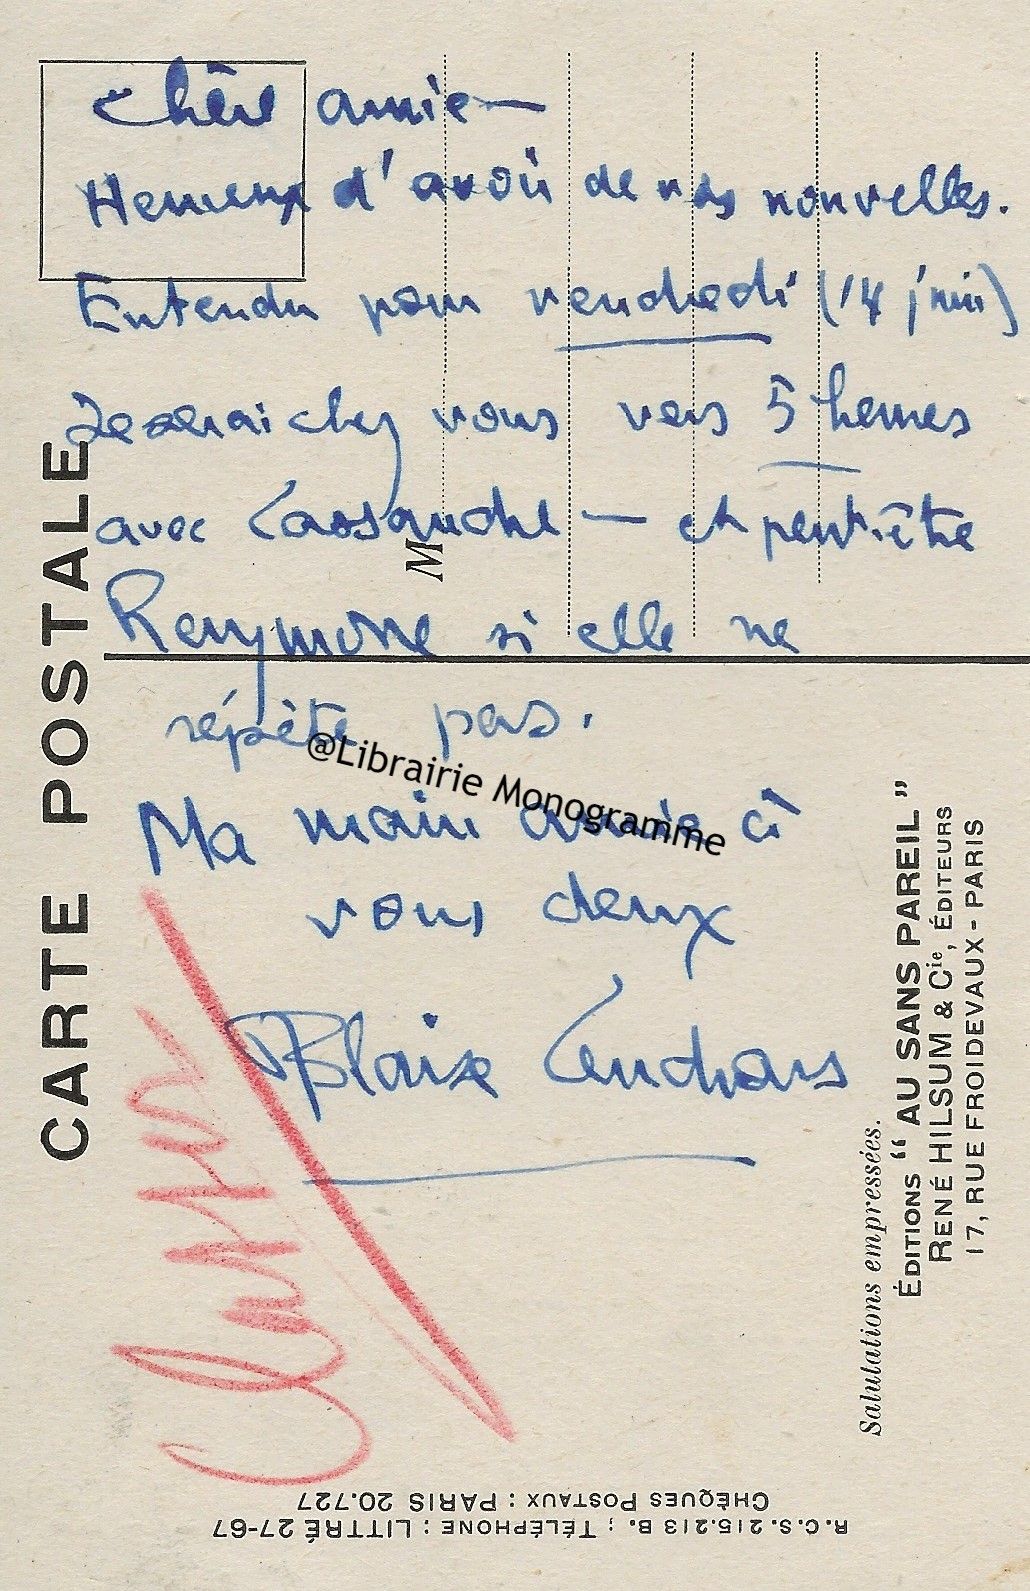 Chère amie —
Heureux d'avoir de vos nouvelles.
Entendu pour vendredi (14 juin)
Je serai chez vous vers 5 heures
avec Cassandre — et peut-être
Raymone si elle ne
répète pas.
Ma main amie à
vous deux
Blaise Cendrars
@Librairie Monogramme
CARTE POSTALE
M
Salutations empressées.
ÉDITIONS “ AU SANS PAREIL ”
RENÉ HILSUM & Cie, ÉDITEURS
17, RUE FROIDEVAUX - PARIS
R.C.S. 215.213 B. ; TÉLÉPHONE : LITTRÉ 27-67
CHÈQUES POSTAUX : PARIS 20.727